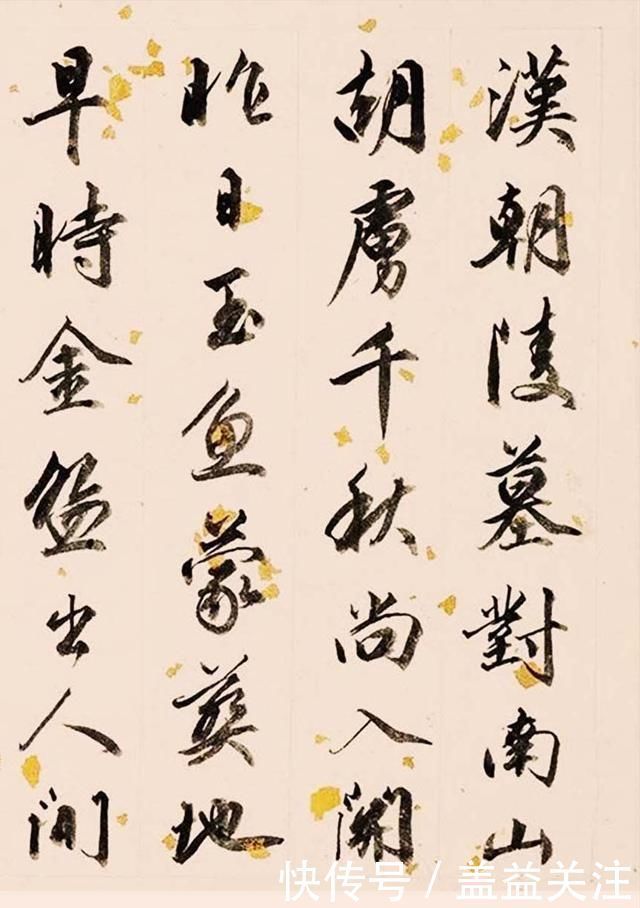 漢朝陵墓對南山
胡虜千秋尚入關
昨日玉魚蒙葬地
早時金盌出人間
快传号 / 盖益关注